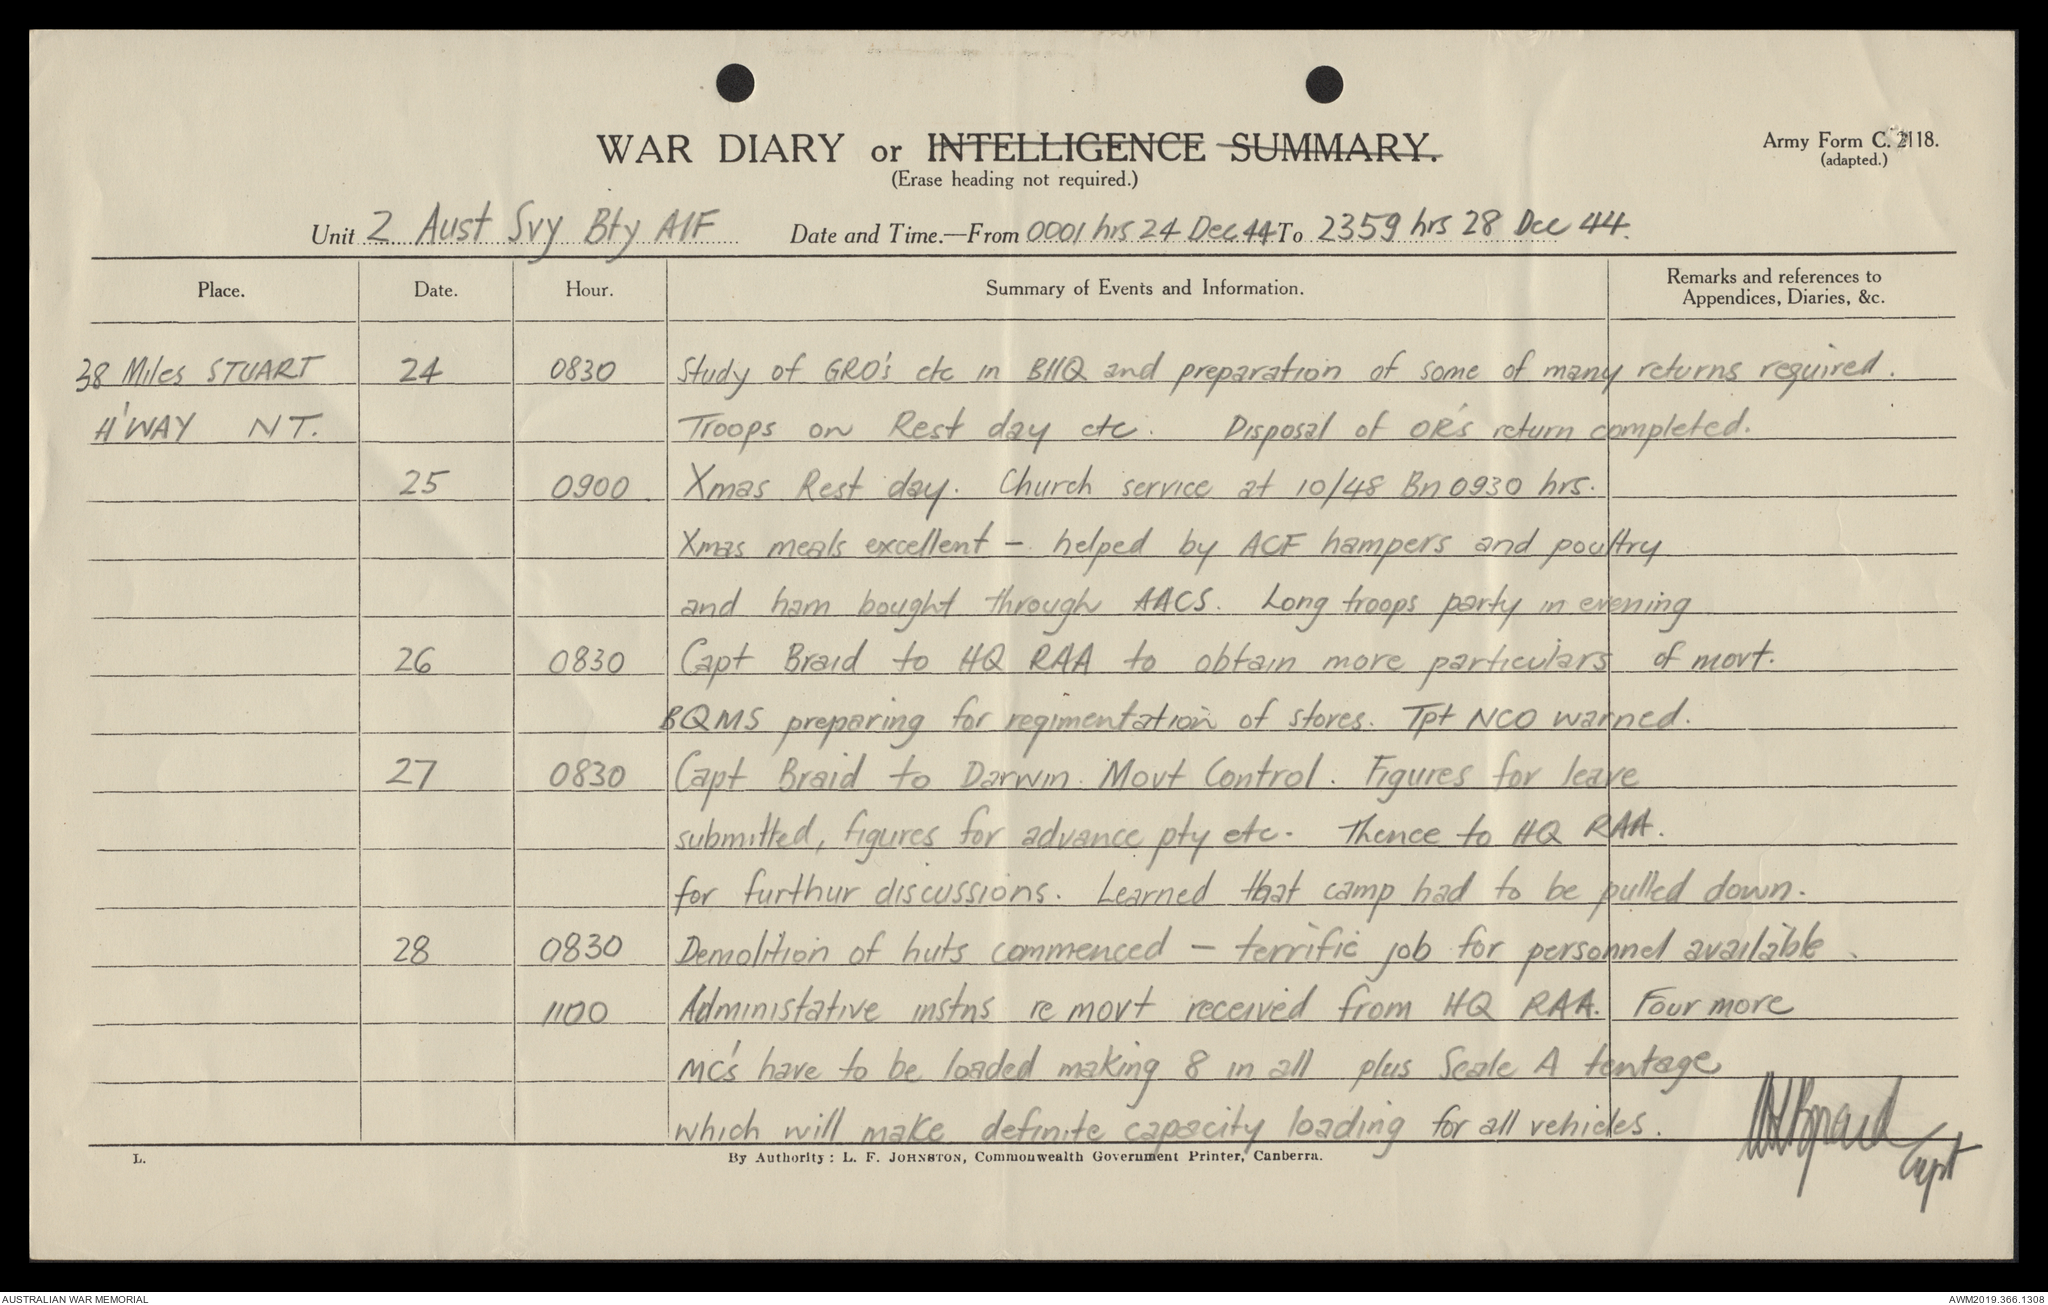 WAR DIARY or INTELLIGENCE SUMMARY.
(Erase heading not required.)
Army Form C. 2118.
(adapted.)
Unit 2 Aust Svy Bty AIF Date and Time.—From 0001 hrs 24 Dec 44 To 2359 hrs 28 Dec 44.
Place. Date. Hour. Summary of Events and Information. Remarks and references to
Appendices, Diaries, &c.
38 Miles STUART 24 0830 Study of GRO's etc in BHQ and preparation of some of many returns required.
H'WAY NT. Troops on Rest day etc. Disposal of OR's return completed.
25 0900 Xmas Rest day. Church service at 10/48 Bn 0930 hrs.
Xmas meals excellent – helped by ACF hampers and poultry
and ham bought through AACS. Long troops party in evening
26 0830 Capt Braid to HQ RAA to obtain more particulars of movt.
BQMS preparing for regimentation of stores. Tpt NCO warned.
27 0830 Capt Braid to Darwin Movt Control. Figures for leave
submitted, figures for advance pty etc. Thence to HQ RAA.
for furthur discussions. Learned that camp had to be pulled down.
28 0830 Demolition of huts commenced – terrific job for personnel available.
1100 Administative instns re movt received from HQ RAA. Four more
MC's have to be loaded making 8 in all plus Scale A tentage
which will make definite capacity loading for all vehicles.
Braid
Capt
L. By Authority: L. F. JOHNSTON, Commonwealth Government Printer, Canberra.
AUSTRALIAN WAR MEMORIAL AWM2019.366.1308